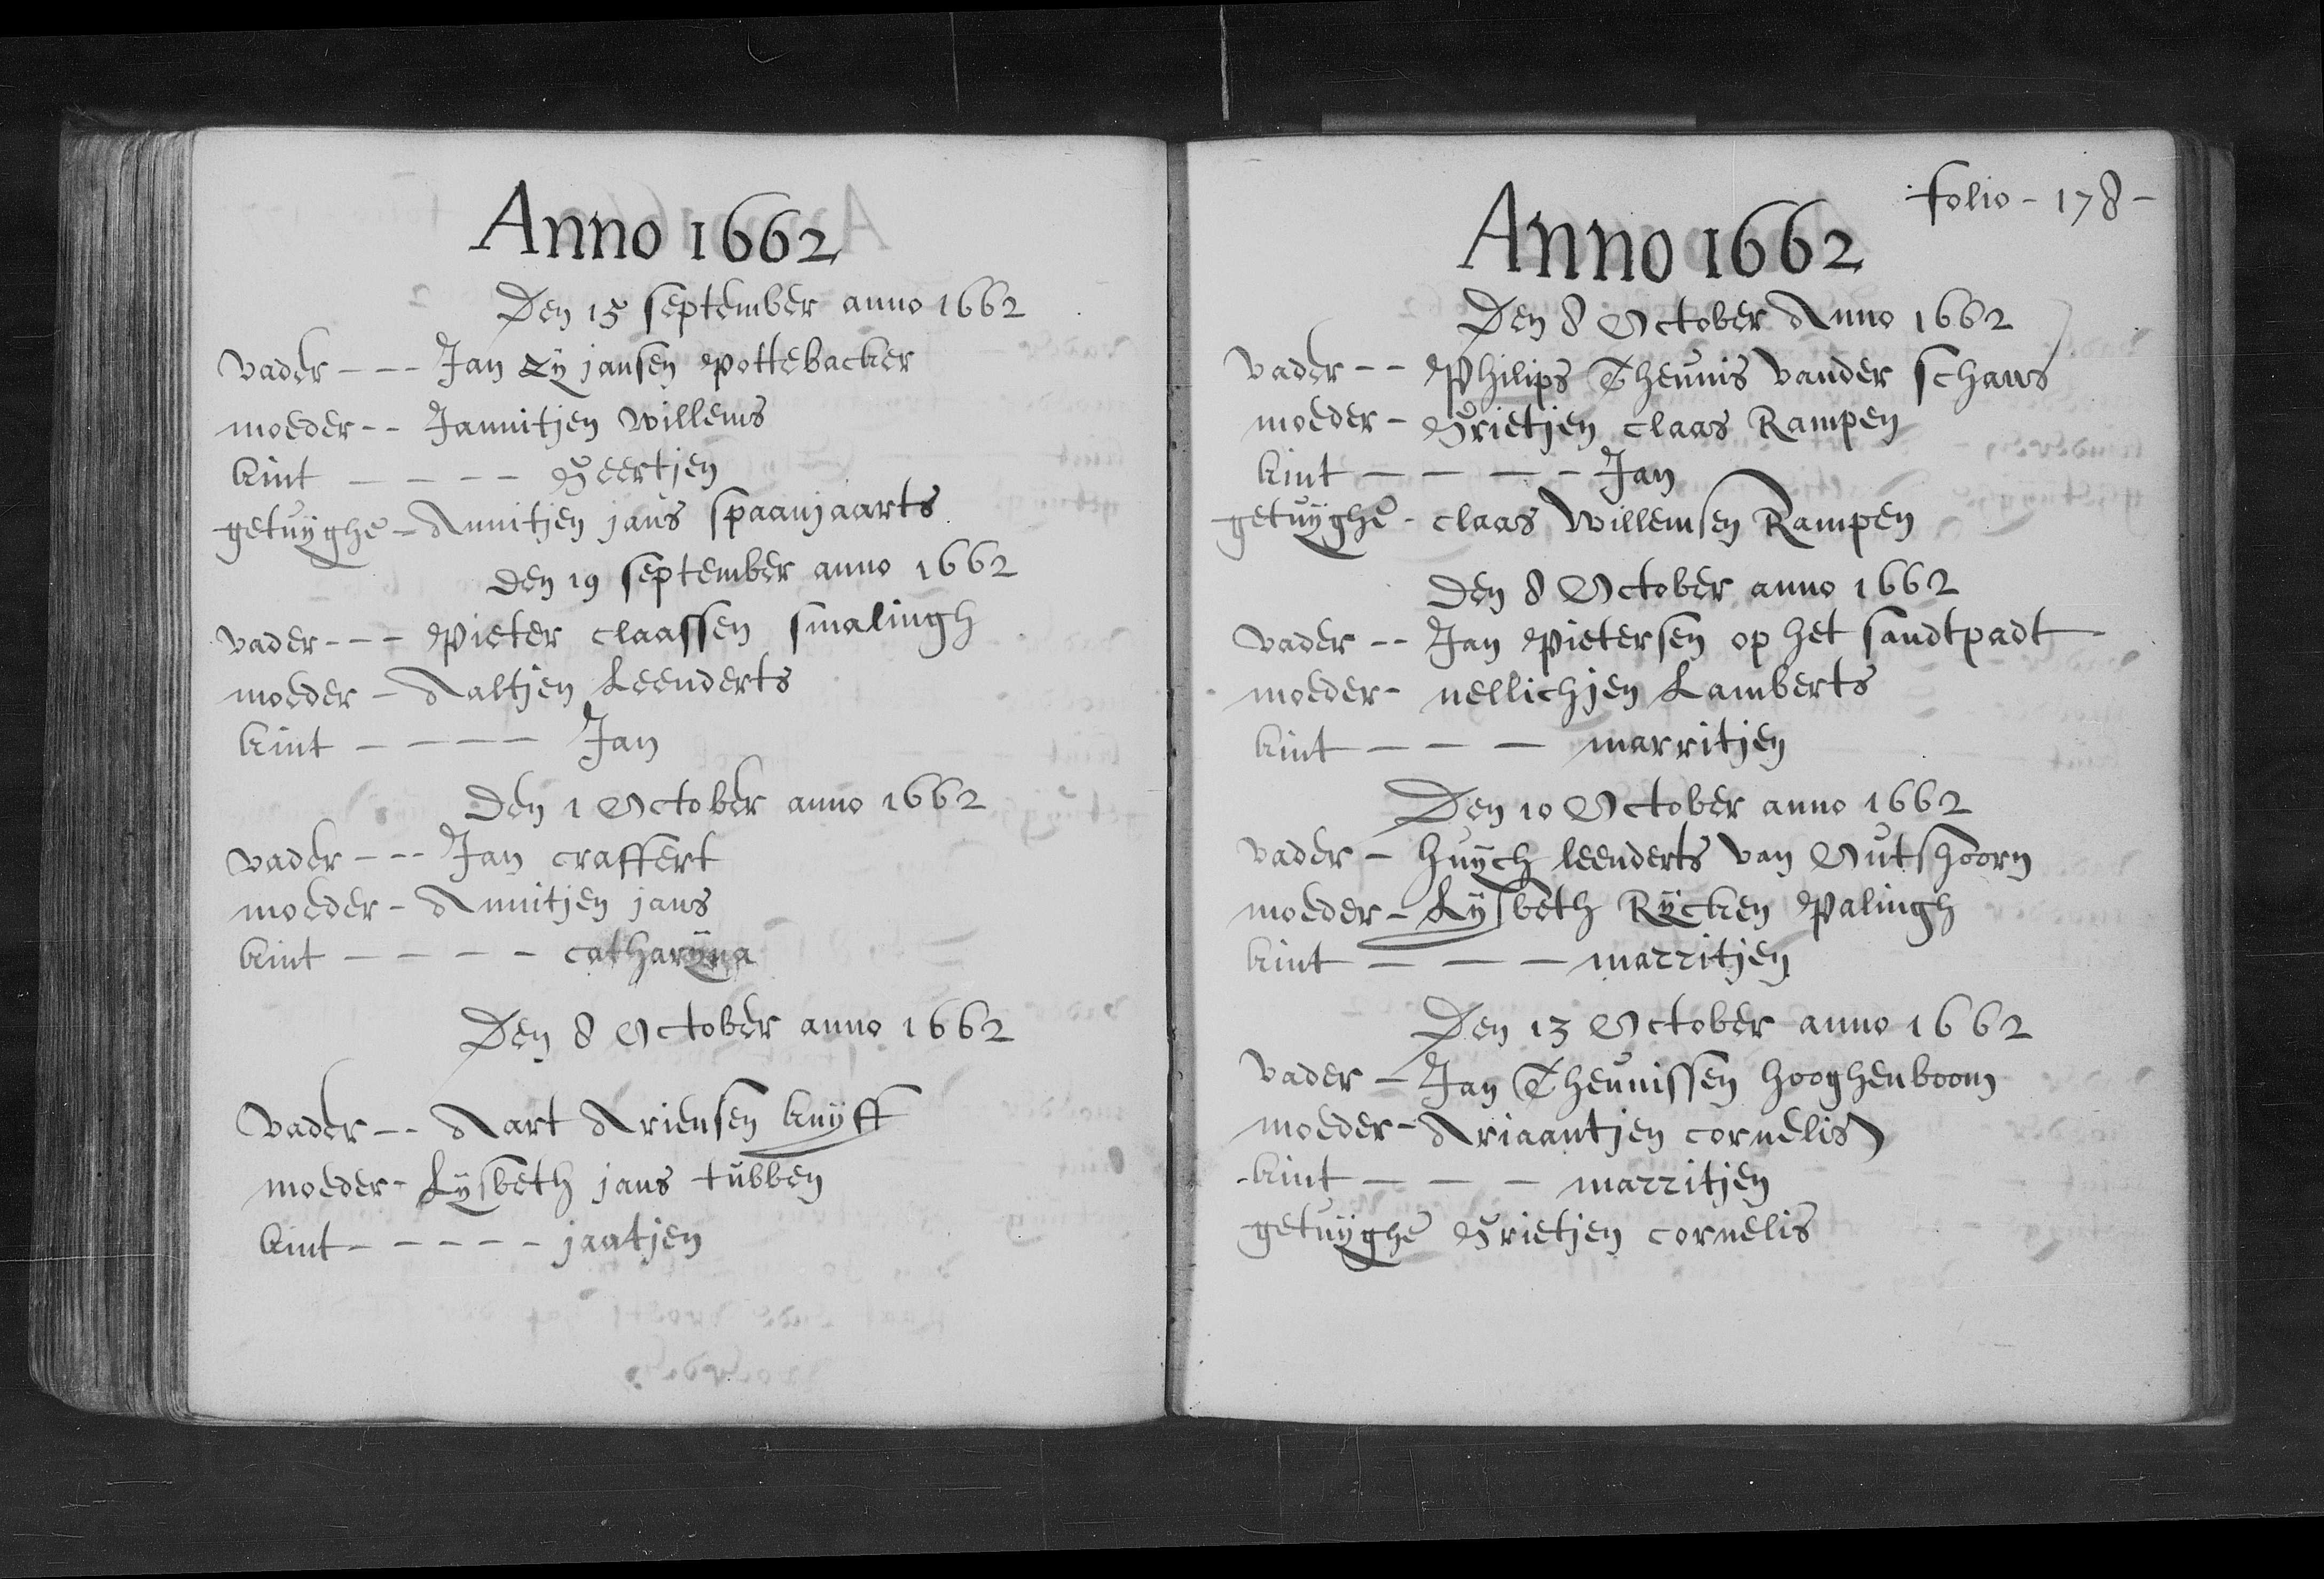 Anno 1662
Den 15 september anno 1662
vader --- Jan Lÿ jansen pottebacker
moeder -- Jannitjen willems
kint ---- Geertjen
getuÿghe - Annitjen jans spaanjaarts
Den 19 september anno 1662
vader --- Pieter claassen smalingh
moeder - Aaltjen Leenderts
kint ---- Jan
Den 1 October anno 1662
vader --- Jan craffert
moeder - Annitjen jans
kint ---- catharÿna
Den 8 October anno 1662
vader -- Aart Ariensen knÿff
moeder - Lÿsbeth jans tubben
kint ----- jaatjen
folio - 178 -
Anno 1662
Den 8 October Anno 1662
vader -- Philips Theunis vander schans
moeder - Grietjen claas Rampen
kint ---- Jan
getuÿghe - claas Willemsen Rampen
Den 8 October anno 1662
vader -- Jan Pietersen op het sandtpadt
moeder - nellichjen Lamberts
kint --- marritjen
Den 10 October anno 1662
vader - huÿch leenderts van Outshoorn
moeder - Lÿsbeth Rÿcken Palingh
kint --- marritjen
Den 13 October anno 1662
vader - Jan Theunissen hooghenboom
moeder - Ariaantjen cornelis
kint --- marritjen
getuÿghe Grietjen cornelis